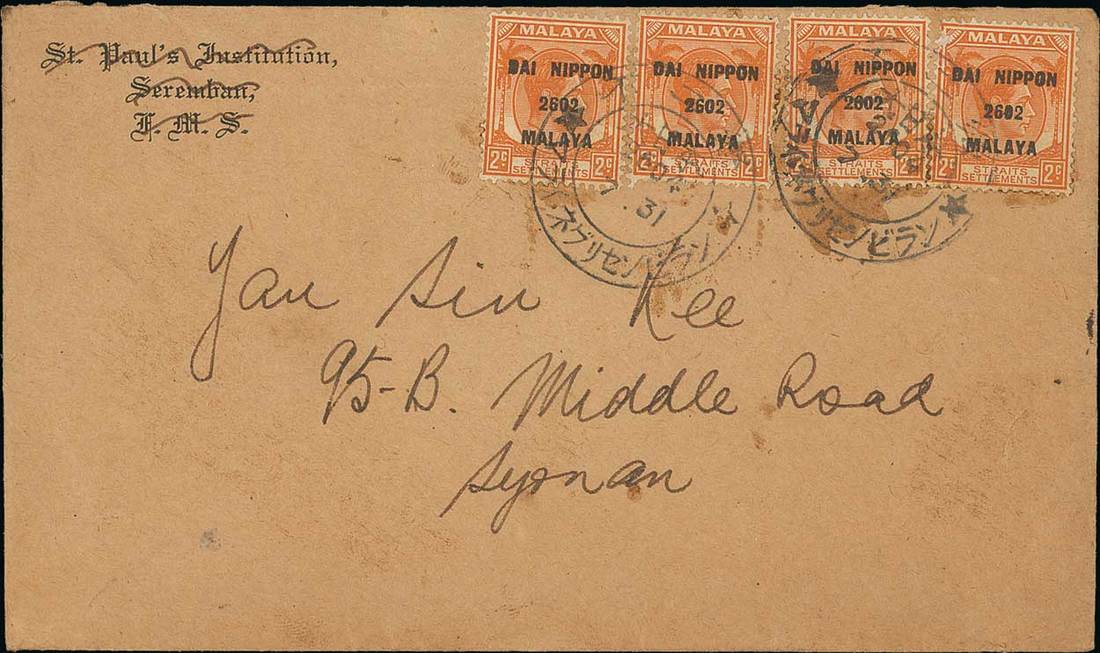 St. Paul's Institution,
Seremban,
F. M. S.
MALAYA MALAYA MALAYA MALAYA
DAI NIPPON DAI NIPPON DAI NIPPON DAI NIPPON
2602 2602 2602 2602
MALAYA MALAYA MALAYA MALAYA
2c STRAITS SETTLEMENTS 2c 2c STRAITS SETTLEMENTS 2c 2c STRAITS SETTLEMENTS 2c 2c STRAITS SETTLEMENTS 2c
.31
ネグリセンビラン
Yau Sin Kee
95-B. Middle Road
Syonan